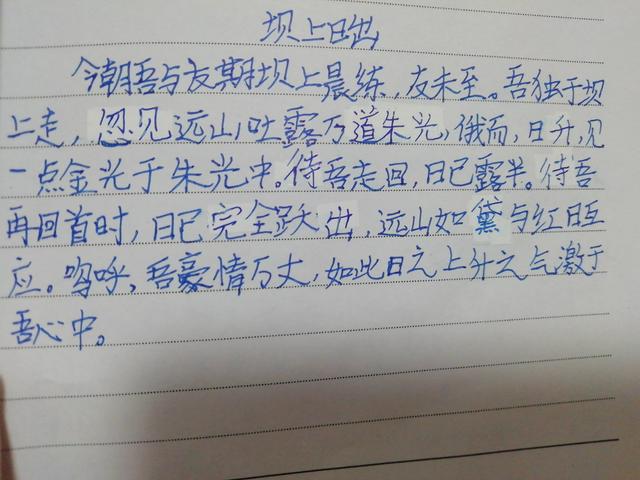 坝上日出
今朝吾与友期坝上晨练,友未至。吾独于坝
上走,忽见远山吐露万道朱光,俄而,日升,见
一点金光于朱光中。待吾走回,日已露半。待吾
再回首时,日已完全跃出,远山如黛与红日互
应。呜呼,吾豪情万丈,如此日之上升之气激于
吾心中。